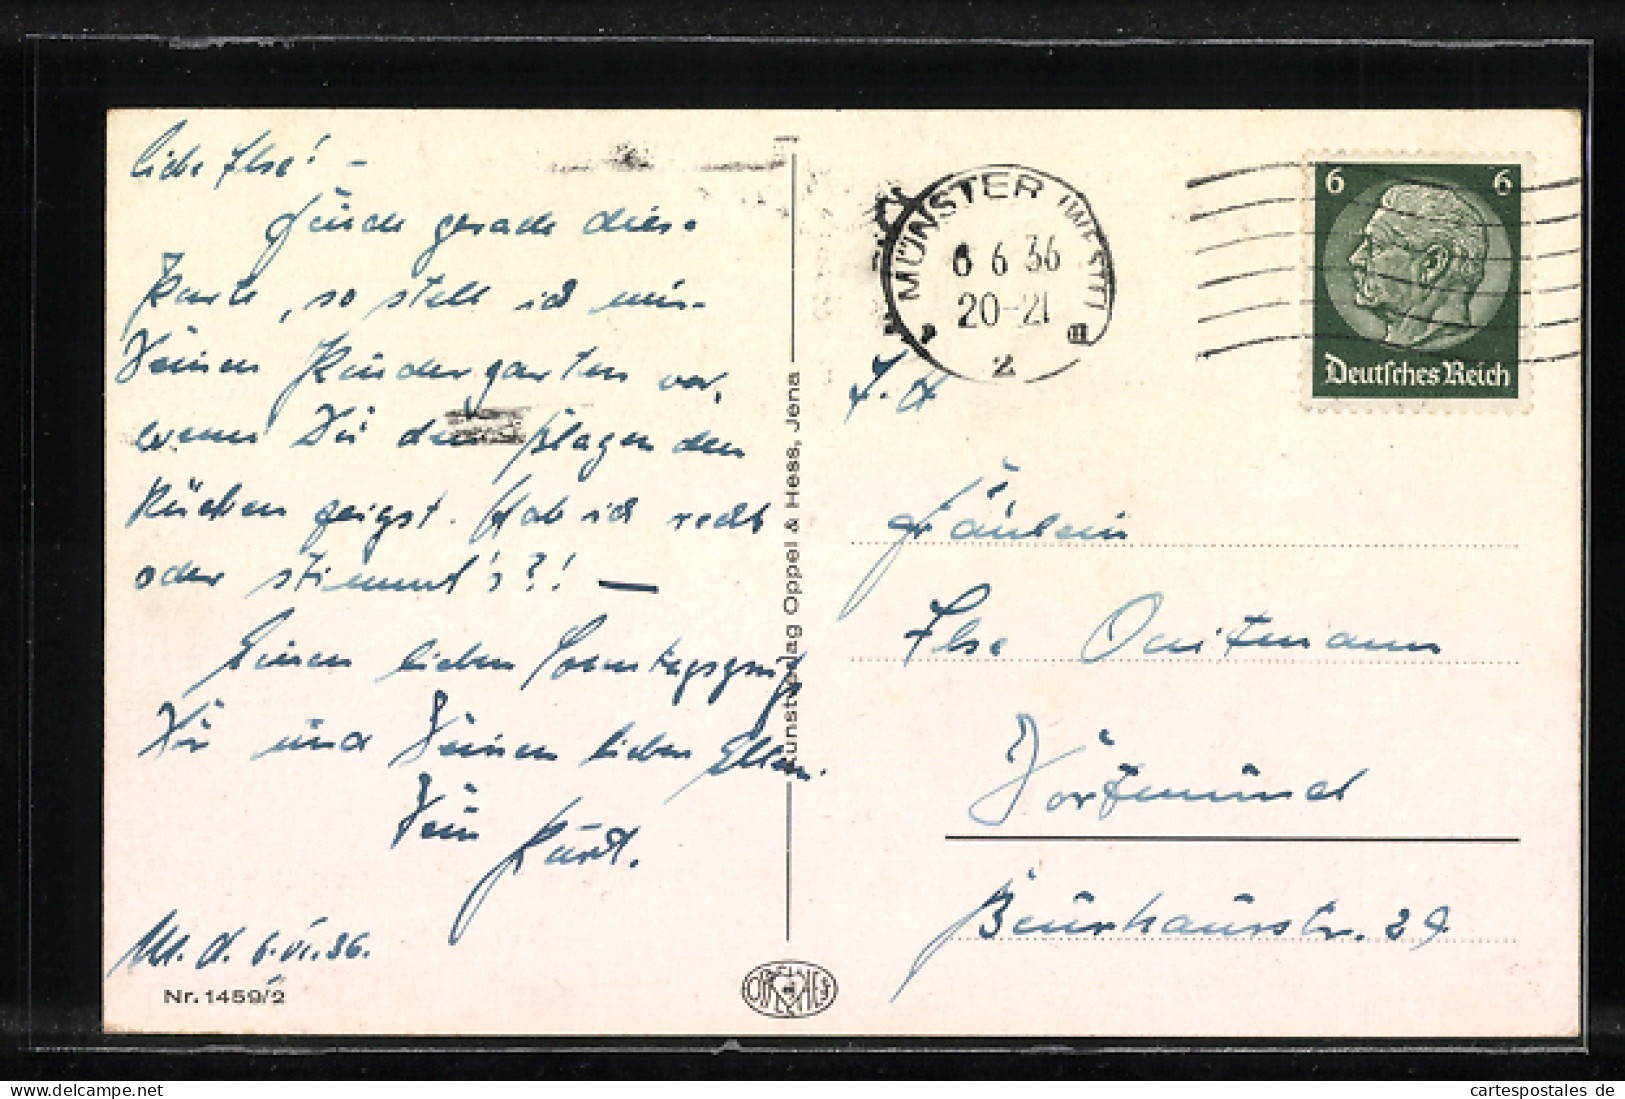 liebe Ilse! –
gerade diese
Karte, so stell ich mir
Deinen Kindergarten vor,
wenn Du den Blagen den
Rücken zeigst. Hab ich recht
oder stimmt's?! —
Einen lieben Sonntagsgruß
Dir und Deinen lieben Eltern.
Dein Kurt.
M. d. 6.VI.36.
Nr. 1459/2
Kunstverlag Oppel & Hess, Jena
MÜNSTER (WESTF)
6 6 36
20-21
2
6 6
Deutsches Reich
Fräulein
Ilse
Dortmund
Beurhausstr. 29
OPPEL HESS
akpool
cartespostales de